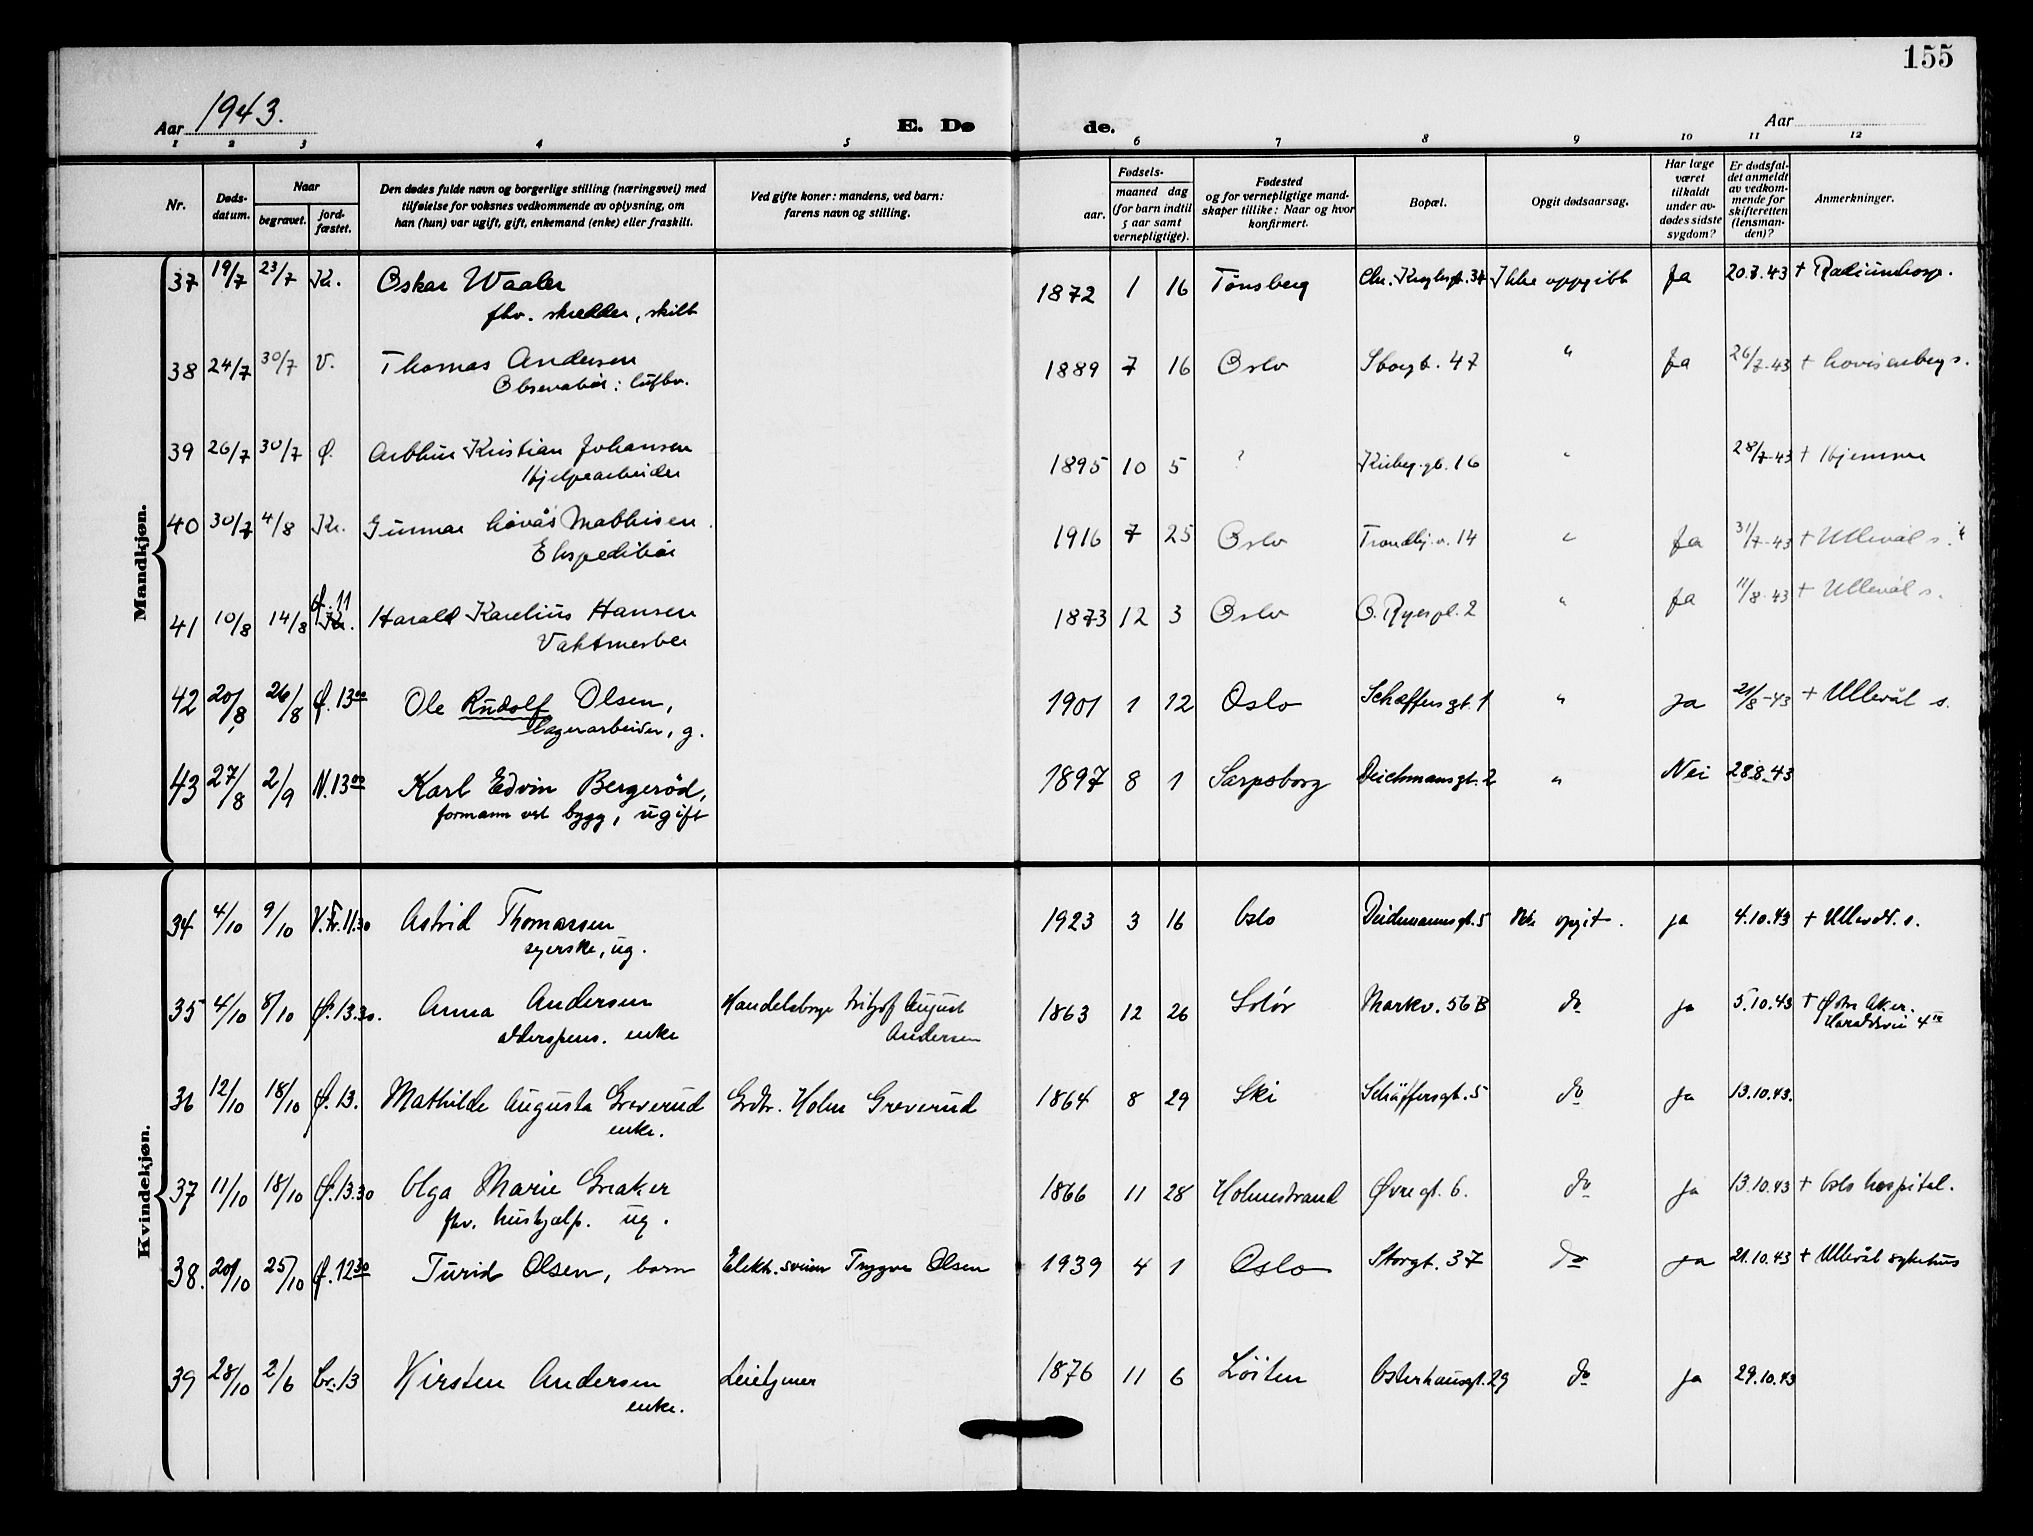 155
Aar 1943.
E. Dø
de.
Aar
1 2 3 4 5 6 7 8 9 10 11 12
Nr.
Døds-
datum.
Naar
begravet.
jord-
fæstet.
Den dødes fulde navn og borgerlige stilling (næringsvei) med
tilføielse for voksnes vedkommende av oplysning, om
han (hun) var ugift, gift, enkemand (enke) eller fraskilt.
Ved gifte koner: mandens, ved barn:
farens navn og stilling.
Fødsels-
aar.
maaned dag
(for barn indtil
5 aar samt
vernepligtige).
Fødested
og for vernepligtige mand-
skaper tillike: Naar og hvor
konfirmert.
Bopæl.
Opgit dødsaarsag.
Har læge
været
tilkaldt
under av-
dødes sidste
sygdom?
Er dødsfal-
det anmeldt
av vedkom-
mende for
skifteretten
(lensman-
den)?
Anmerkninger.
Mandkjøn.
37 19/7 23/7 Kr. Oskar Waaler 1872 1 16 Tønsberg Chr. Kroghsgt. 34 Ikke oppgitt Ja 20.7.43 + Radiumhosp.
fhv. skredder, skilt
38 24/7 30/7 V. Thomas Andersen 1889 7 16 Oslo Storgt. 47 " Ja 26/7-43 + Lovisenberg s.
Observatør: luftv.
39 26/7 30/7 Ø. Arthur Kristian Johansen 1895 10 5 ? Kirkeg.gt. 16 " 28/7-43 + Hjemme
Hjelpearbeider
40 30/7 4/8 Kr. Gunnar Løvås Mathisen 1916 7 25 Oslo Trondhj.v. 14 " Ja 31/7-43 + Ullevål s.
Ekspeditør
41 10/8 14/8 Ø. 11 Harald Karelius Hansen 1873 12 3 Oslo O. Ryespl. 2 " Ja 11/8-43 + Ullevål s.
Vaktmester
42 20/8 26/8 Ø. 13 00 Ole Rudolf Olsen, 1901 1 12 Oslo Schæffersgt. 1 " Ja 21/8-43 + Ullevål s.
lagerarbeider, g.
43 27/8 2/9 N. 13 00 Karl Edvin Bergerød, 1897 8 1 Sarpsborg Deichmansgt. 2 " Nei 28.8.43
formann ved bygg, ugift
Kvindekjøn.
34 4/10 9/10 V.Kr. 11.30 Astrid Thomassen 1923 3 16 Oslo Deichmannsgt. 5 Ikke opgit. ja 4.10.43 + Ullevål. s.
syerske, ug.
35 4/10 8/10 Ø. 13.30. Anna Andersen Handelsborger Fritjof August 1863 12 26 Solør Markv. 56 B do ja 5.10.43 + Østre Aker.
alderspens. enke Andersen Haraldsvei 4
36 12/10 18/10 Ø. 13. Mathilde Augusta Greverud Grdbr. Holm Greverud 1864 8 29 Ski Schäffersgt. 5 do ja 13.10.43.
enke.
37 11/10 18/10 Ø. 13.30 Olga Marie Greaker 1866 11 28 Holmestrand Øvregt. 6. do ja 13.10.43 + Oslo hospital.
fhv. hushjælp. ug.
38. 20/10 25/10 Ø. 12 30 Turid Olsen, barn Elektr. svein Trygve Olsen 1939 4 1 Oslo Storgt. 37 do ja 21.10.43 + Ullevål sykehus
39 28/10 2/6 Gr. 13 Kirsten Andersen 1876 11 6 Løiten Osterhausgt. 29 do ja 29.10.43
enke.